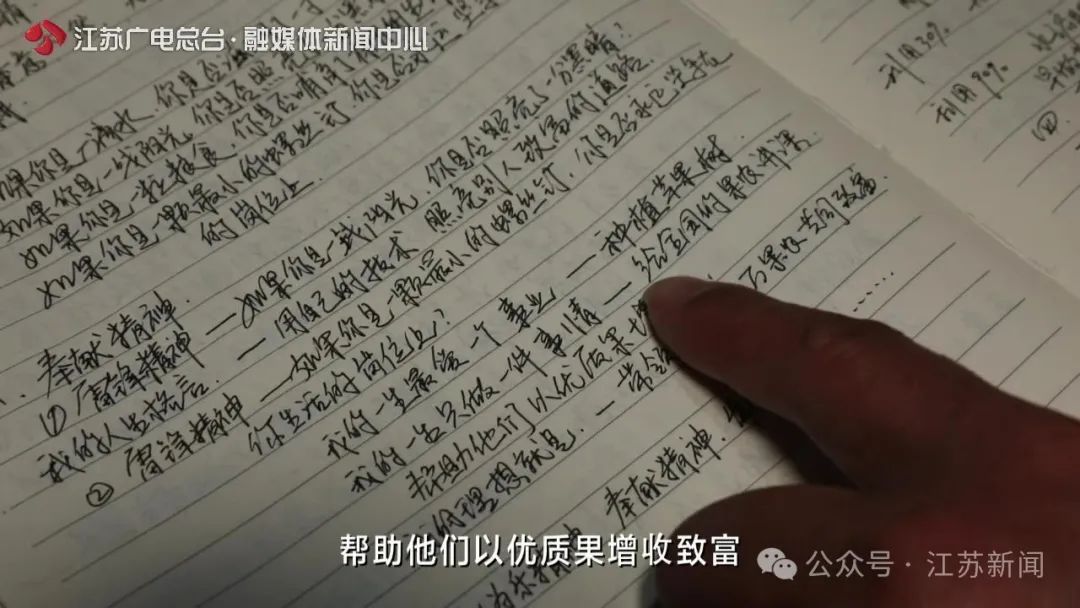 江苏广电总台·融媒体新闻中心
利用30%
利用90%
如果你是一滴水,你是否滋
如果你是一线阳光,你是否照亮
如果你是一粒粮食,你是否哺育了
如果你是一颗最小的螺丝钉 你是否
的岗位上.
(四
奉献精神.
① 雷锋精神 — 如果你是一线阳光,你是否照亮了一分黑暗?
我的人生格言. — 用自己的技术 照亮别人致富的道路.
② 雷锋精神 — 如果你是一颗最小的螺丝钉,你是否永远坚守在
你生活的岗位上?
我的一生最爱一个事业 — 种植苹果树
我的一生只做一件事情 — 给全国的果农讲课.
帮助他们以优质果增
的理想就是. — 带领 万果农共同致富.
……
奉献精神.
帮助他们以优质果增收致富
公众号·江苏新闻